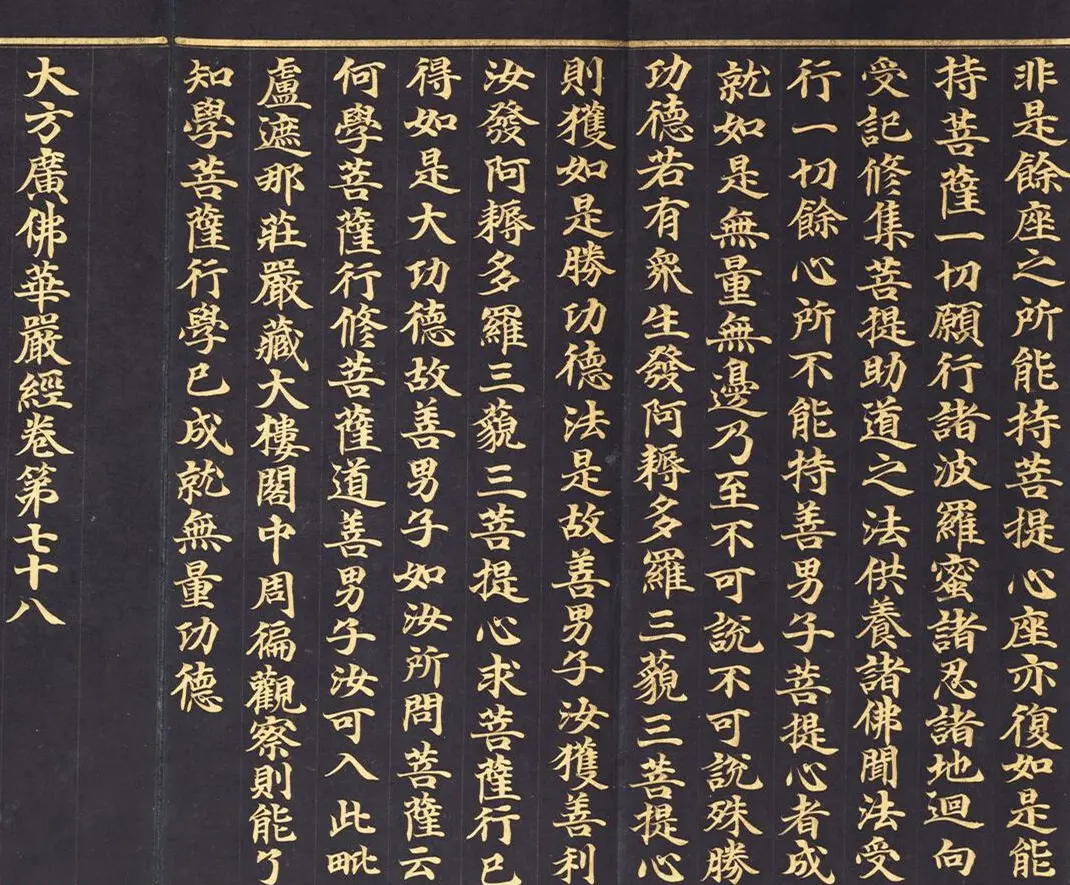 非是餘座之所能持菩提心座亦復如是能
持菩薩一切願行諸波羅蜜諸忍諸地迴向
受記修集菩提助道之法供養諸佛聞法受
行一切餘心所不能持善男子菩提心者成
就如是無量無邊乃至不可說不可說殊勝
功德若有衆生發阿耨多羅三藐三菩提心
則獲如是勝功德法是故善男子汝獲善利
汝發阿耨多羅三藐三菩提心求菩薩行已
得如是大功德故善男子如汝所問菩薩云
何學菩薩行修菩薩道善男子汝可入此毗
盧遮那莊嚴藏大樓閣中周徧觀察則能了
知學菩薩行學已成就無量功德
大方廣佛華嚴經卷第七十八